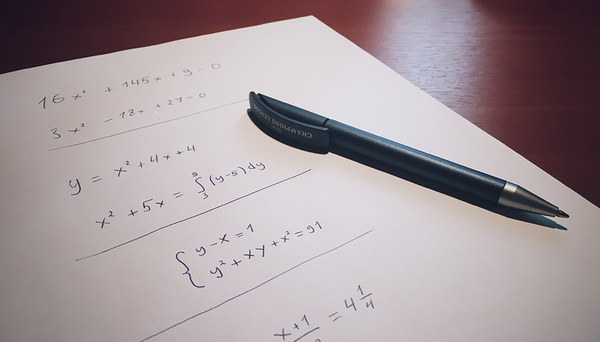 16x² + 145x + 9 = 0
3x² - 18x + 27 = 0
y = x² + 4x + 4
x² + 5x = ∫₃⁸(y-5)dy
{ y - x = 1
y² + xy + x² = 91
x+1
= 4 1/4
CHAMPIONS